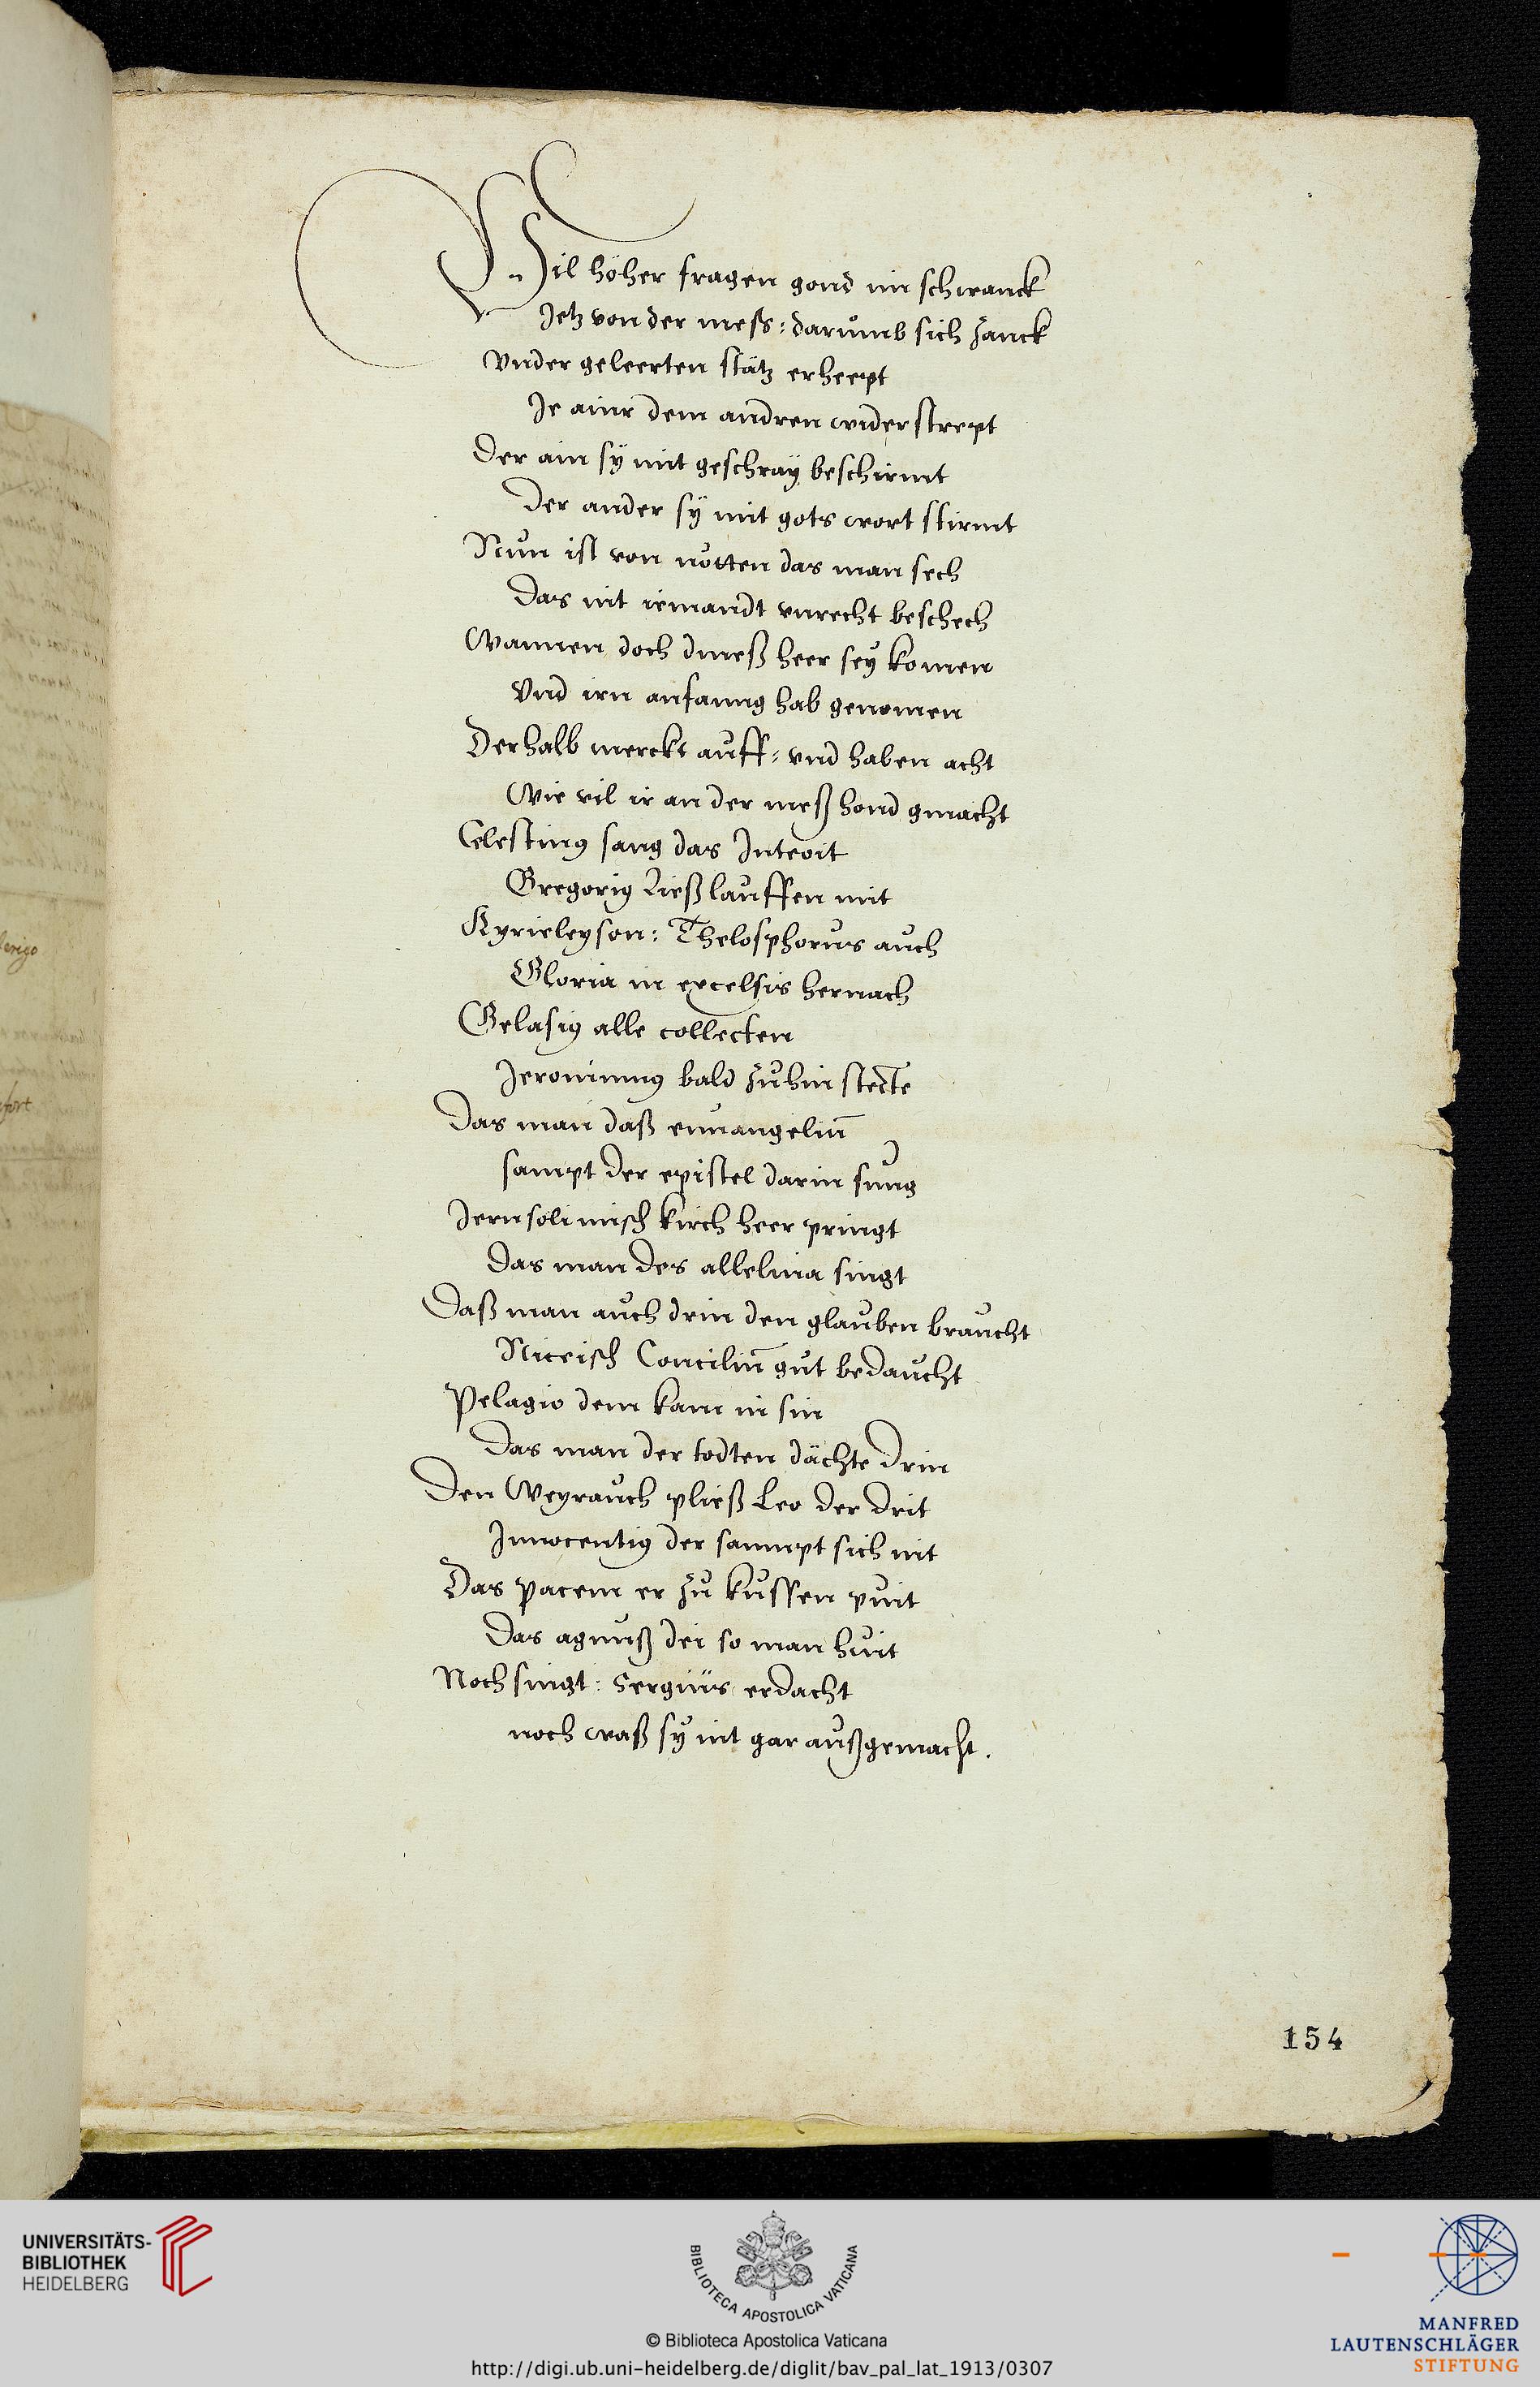 Vil höher fragen gond im schwanck
Jetz von der mess: darumb sich zanck
Vnder geleerten stätz erheept
Je ainr dem andren widerstrept
Der ain sÿ mit geschraÿ beschirmt
Der ander sÿ mit gots wort stirmt
Nun ist von nötten das man sech
Das nit iemandt vnrecht beschech
Wannen doch dmeß heer seÿ komen
Vnd irn anfanng hab genomen
Derhalb merckt auff: vnd haben acht
Wie vil ir an der meß hond gmacht
Celestinꝰ sang das Introit
Gregoriꝰ ließ lauffen mit
Kyrieleyson: Thelosphorus auch
Gloria in excelsis hernach
Gelasiꝰ alle collecten
Jeronimuꝰ bald zuhin steckte
Das man daß euuangeliū
sampt der epistel darin sung
Jerusolimisch kirch heer pringt
Das man des alleluia singt
Daß man auch drin den glauben braucht
Niceisch Conciliū gut bedaucht
Pelagio dem kam in sin
Das man der todten dächte drin
Den Weyrauch pließ Leo der drit
Innocentiꝰ der saumpt sich nit
Das pacem er zu kussen puit
Das agnuß dei so man huit
Noch singt: Sergius erdacht
noch waß sÿ nit gar außgemacht.
154
UNIVERSITÄTS-
BIBLIOTHEK
HEIDELBERG
BIBLIOTECA APOSTOLICA VATICANA
© Biblioteca Apostolica Vaticana
http://digi.ub.uni-heidelberg.de/diglit/bav_pal_lat_1913/0307
MANFRED
LAUTENSCHLÄGER
STIFTUNG